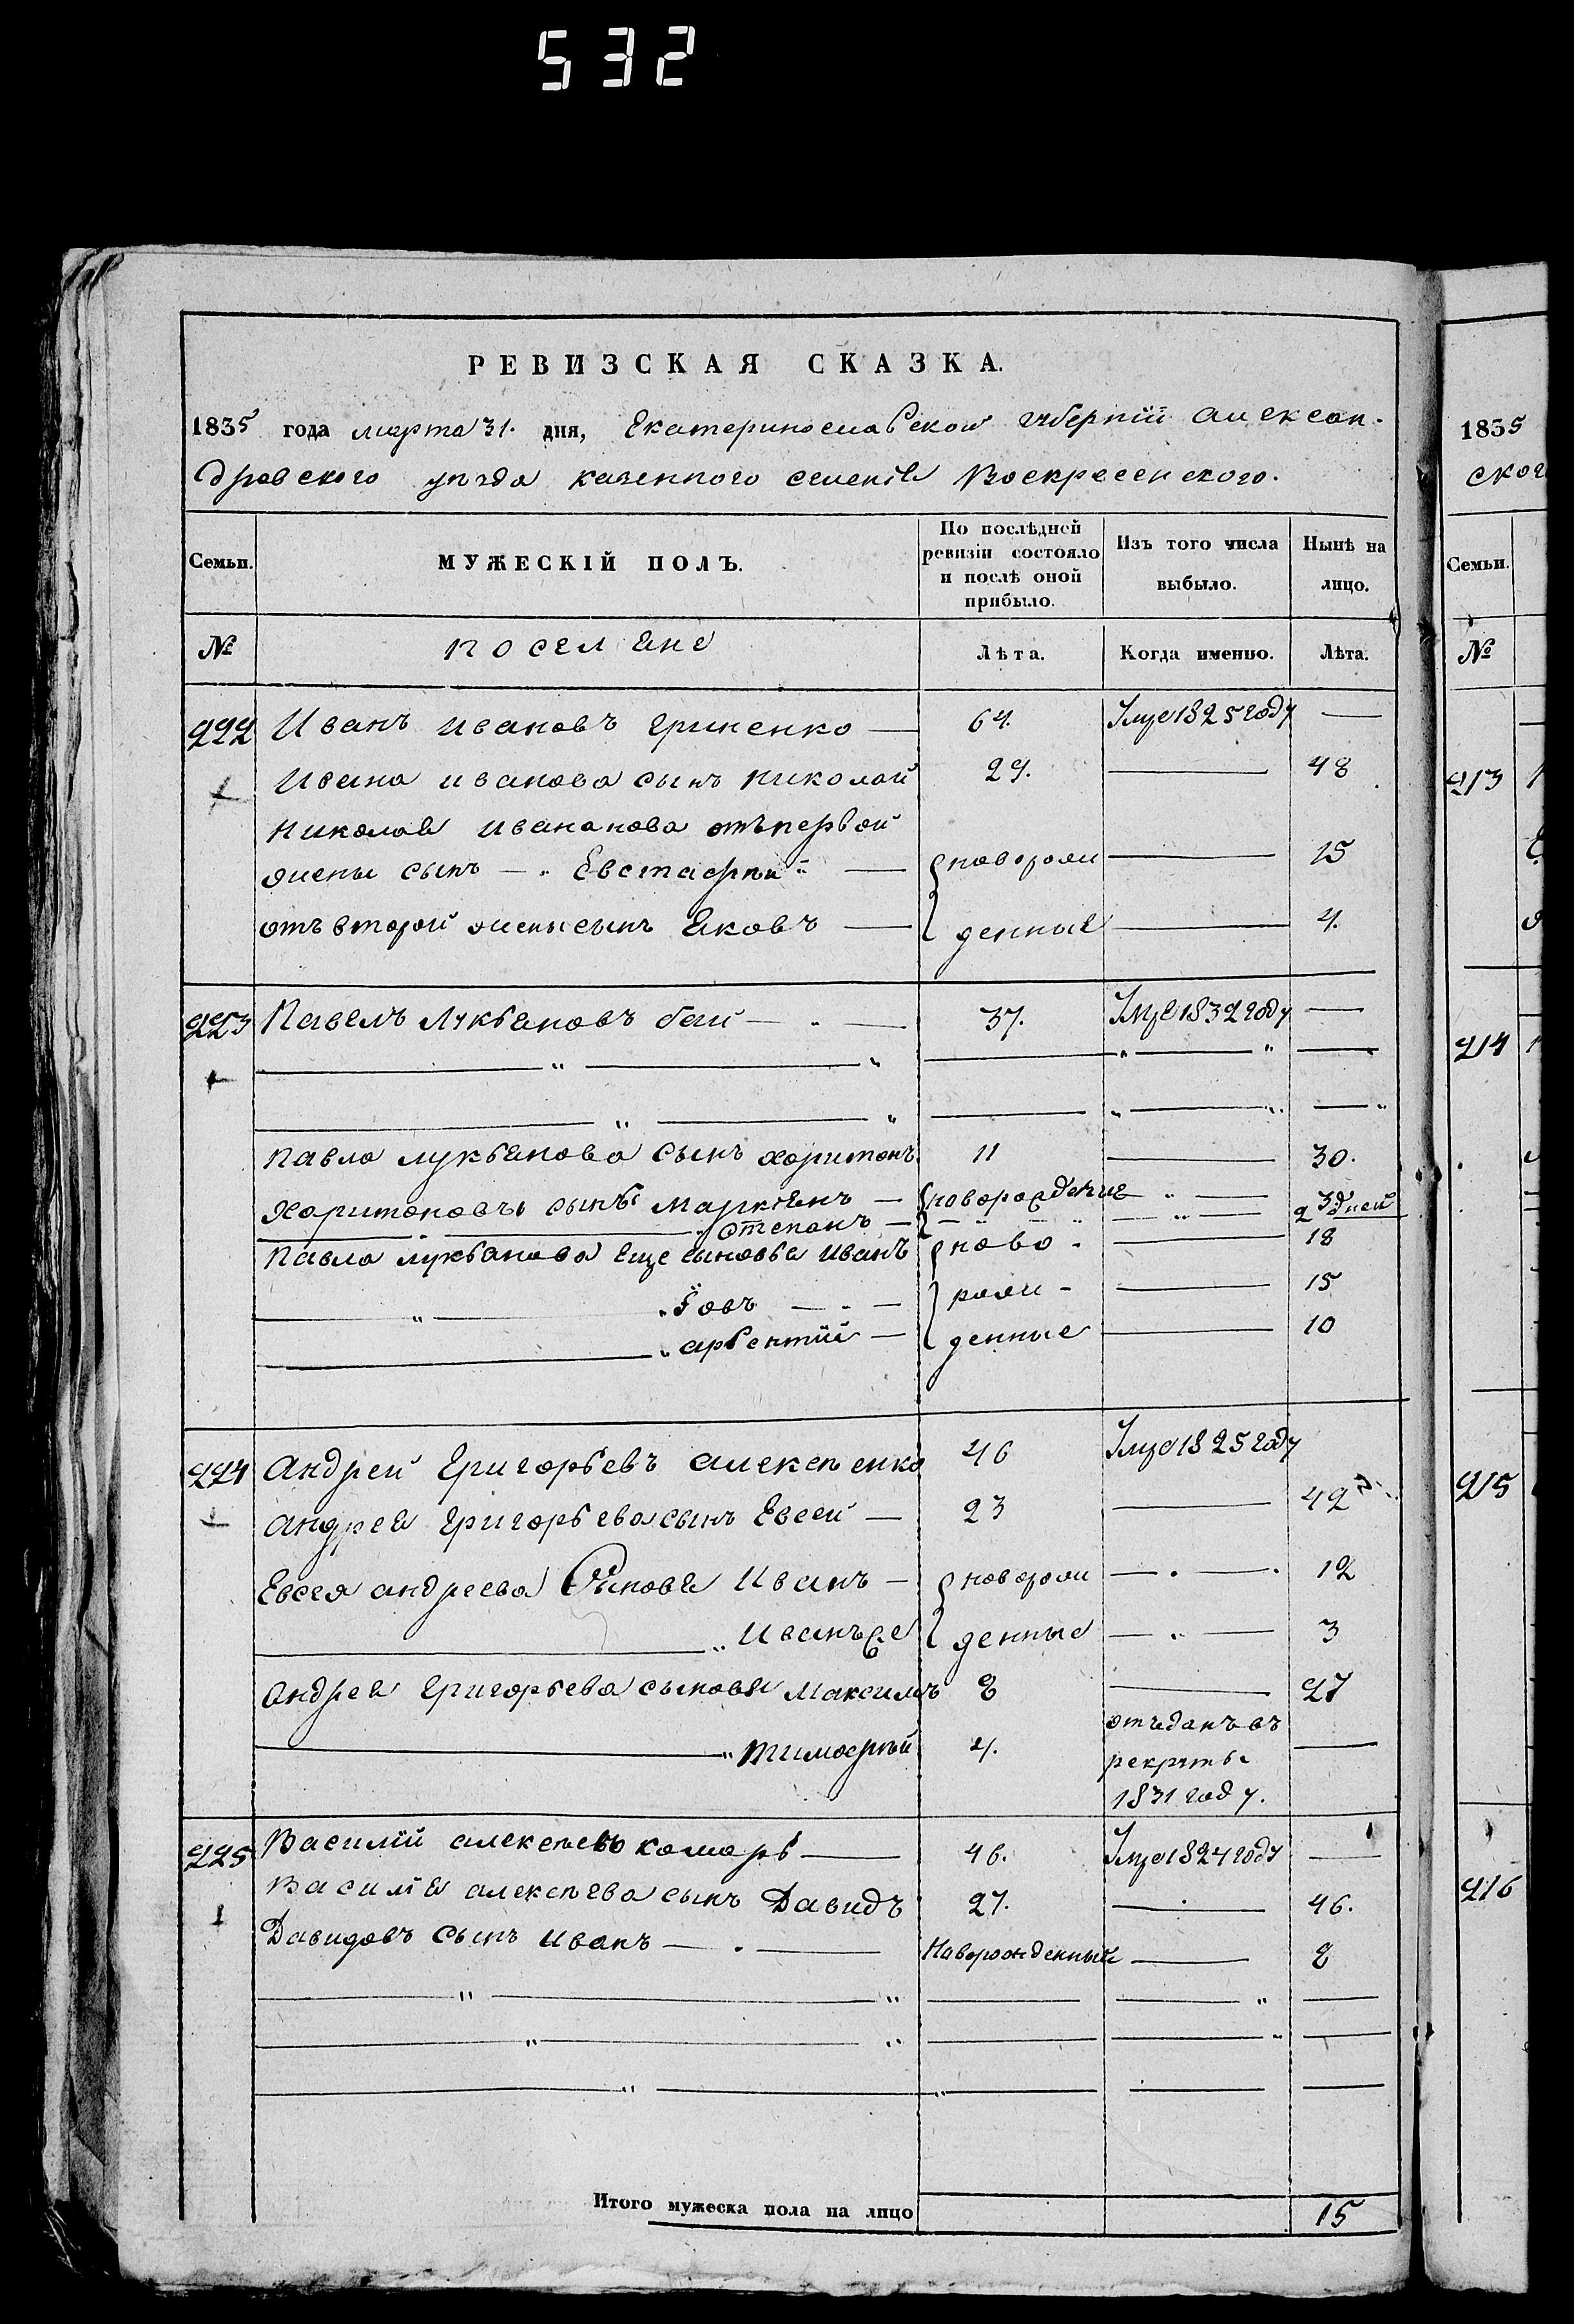 532
РЕВИЗСКАЯ СКАЗКА.
1835 года марта 31. дня, Екатеринославской губернїи Алексан-
дровского уезда казенного селенїя Воскресенского.
Семьи.
МУЖЕСКІЙ ПОЛЪ.
По послѣдней ревизіи состояло и послѣ оной прибыло.
Изъ того числа выбыло.
Нынѣ на лицо.
№
поселяне
Лѣта.
Когда именно.
Лѣта.
222 Иванъ Ивановъ Гриненко 64. Умре 1825 году
Ивана Иванова сынъ Николай 29. 48
Николая Ивананова отъ первой
жены сынъ Евстафий новорож 15
отъ второй жены сынъ Яковъ денные 4.
223 Павелъ Лукьяновъ бай 37. Умре 1832 году
Павла Лукьянова сынъ Харитонъ 11 30.
Харитоновы сыны Маркїянъ новорожденые 3 дней
Степанъ 2
Павла Лукьянова еще сыновья Иванъ ново- 18
Їовъ рож- 15
Арсентїй денные 10
224 Андрей Григорьевъ Алексеенко 46 Умре 1825 году
Андрея Григорьева сынъ Евсей 23 42
Евсея Андреева Сыновья Иванъ новорож 12
Иванъ же денные 3
Андрея Григорьева сыновья Максимъ 8 27
Тимофей 4. отъданъ въ
рекруты
1831 году.
225 Василїй Алексеевъ Комаръ 46. Умре 1824 году
Василїя Алексеева сынъ Давидъ 27. 46.
Давидовъ сынъ Иванъ Новорожденный 2
Итого мужеска пола на лицо 15
1835
ског
Семьи.
№
213
214
215
216